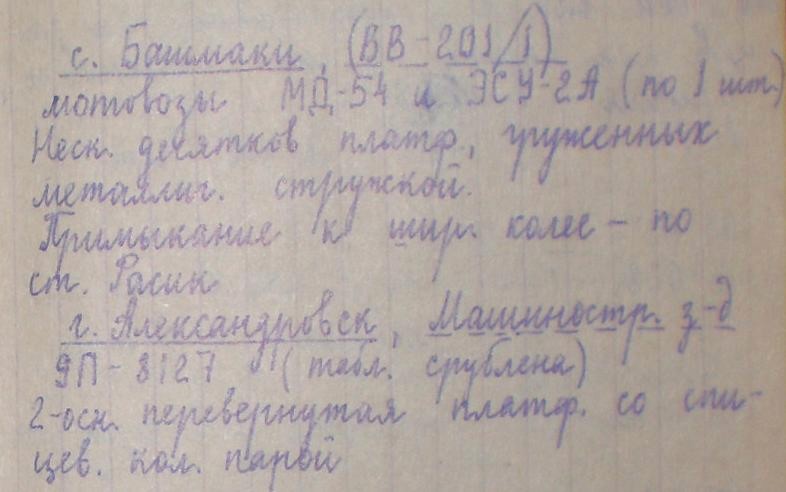 с. Башмаки, (ВВ-201/1)
мотовозы МД-54 и ЭСУ-2А (по 1 шт.)
Неск. десятков платф., груженных
металлич. стружкой.
Примыкание к шир. колее - по
ст. Расик
г. Александровск, Машиностр. з-д
9П-3127 (табл. срублена)
2-осн. перевернутая платф. со спи-
цев. кол. парой